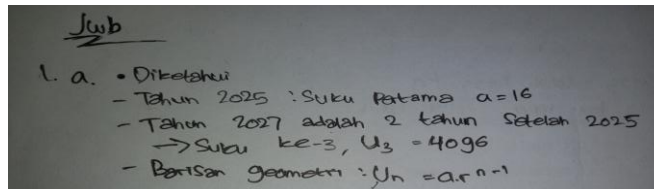 Jwb
1. a. • Diketahui
- Tahun 2025 : Suku Pertama a = 16
- Tahun 2027 adalah 2 tahun Setelah 2025
→ Suku ke-3, U3 = 4096
- Barisan geometri : Un = a.r^n-1